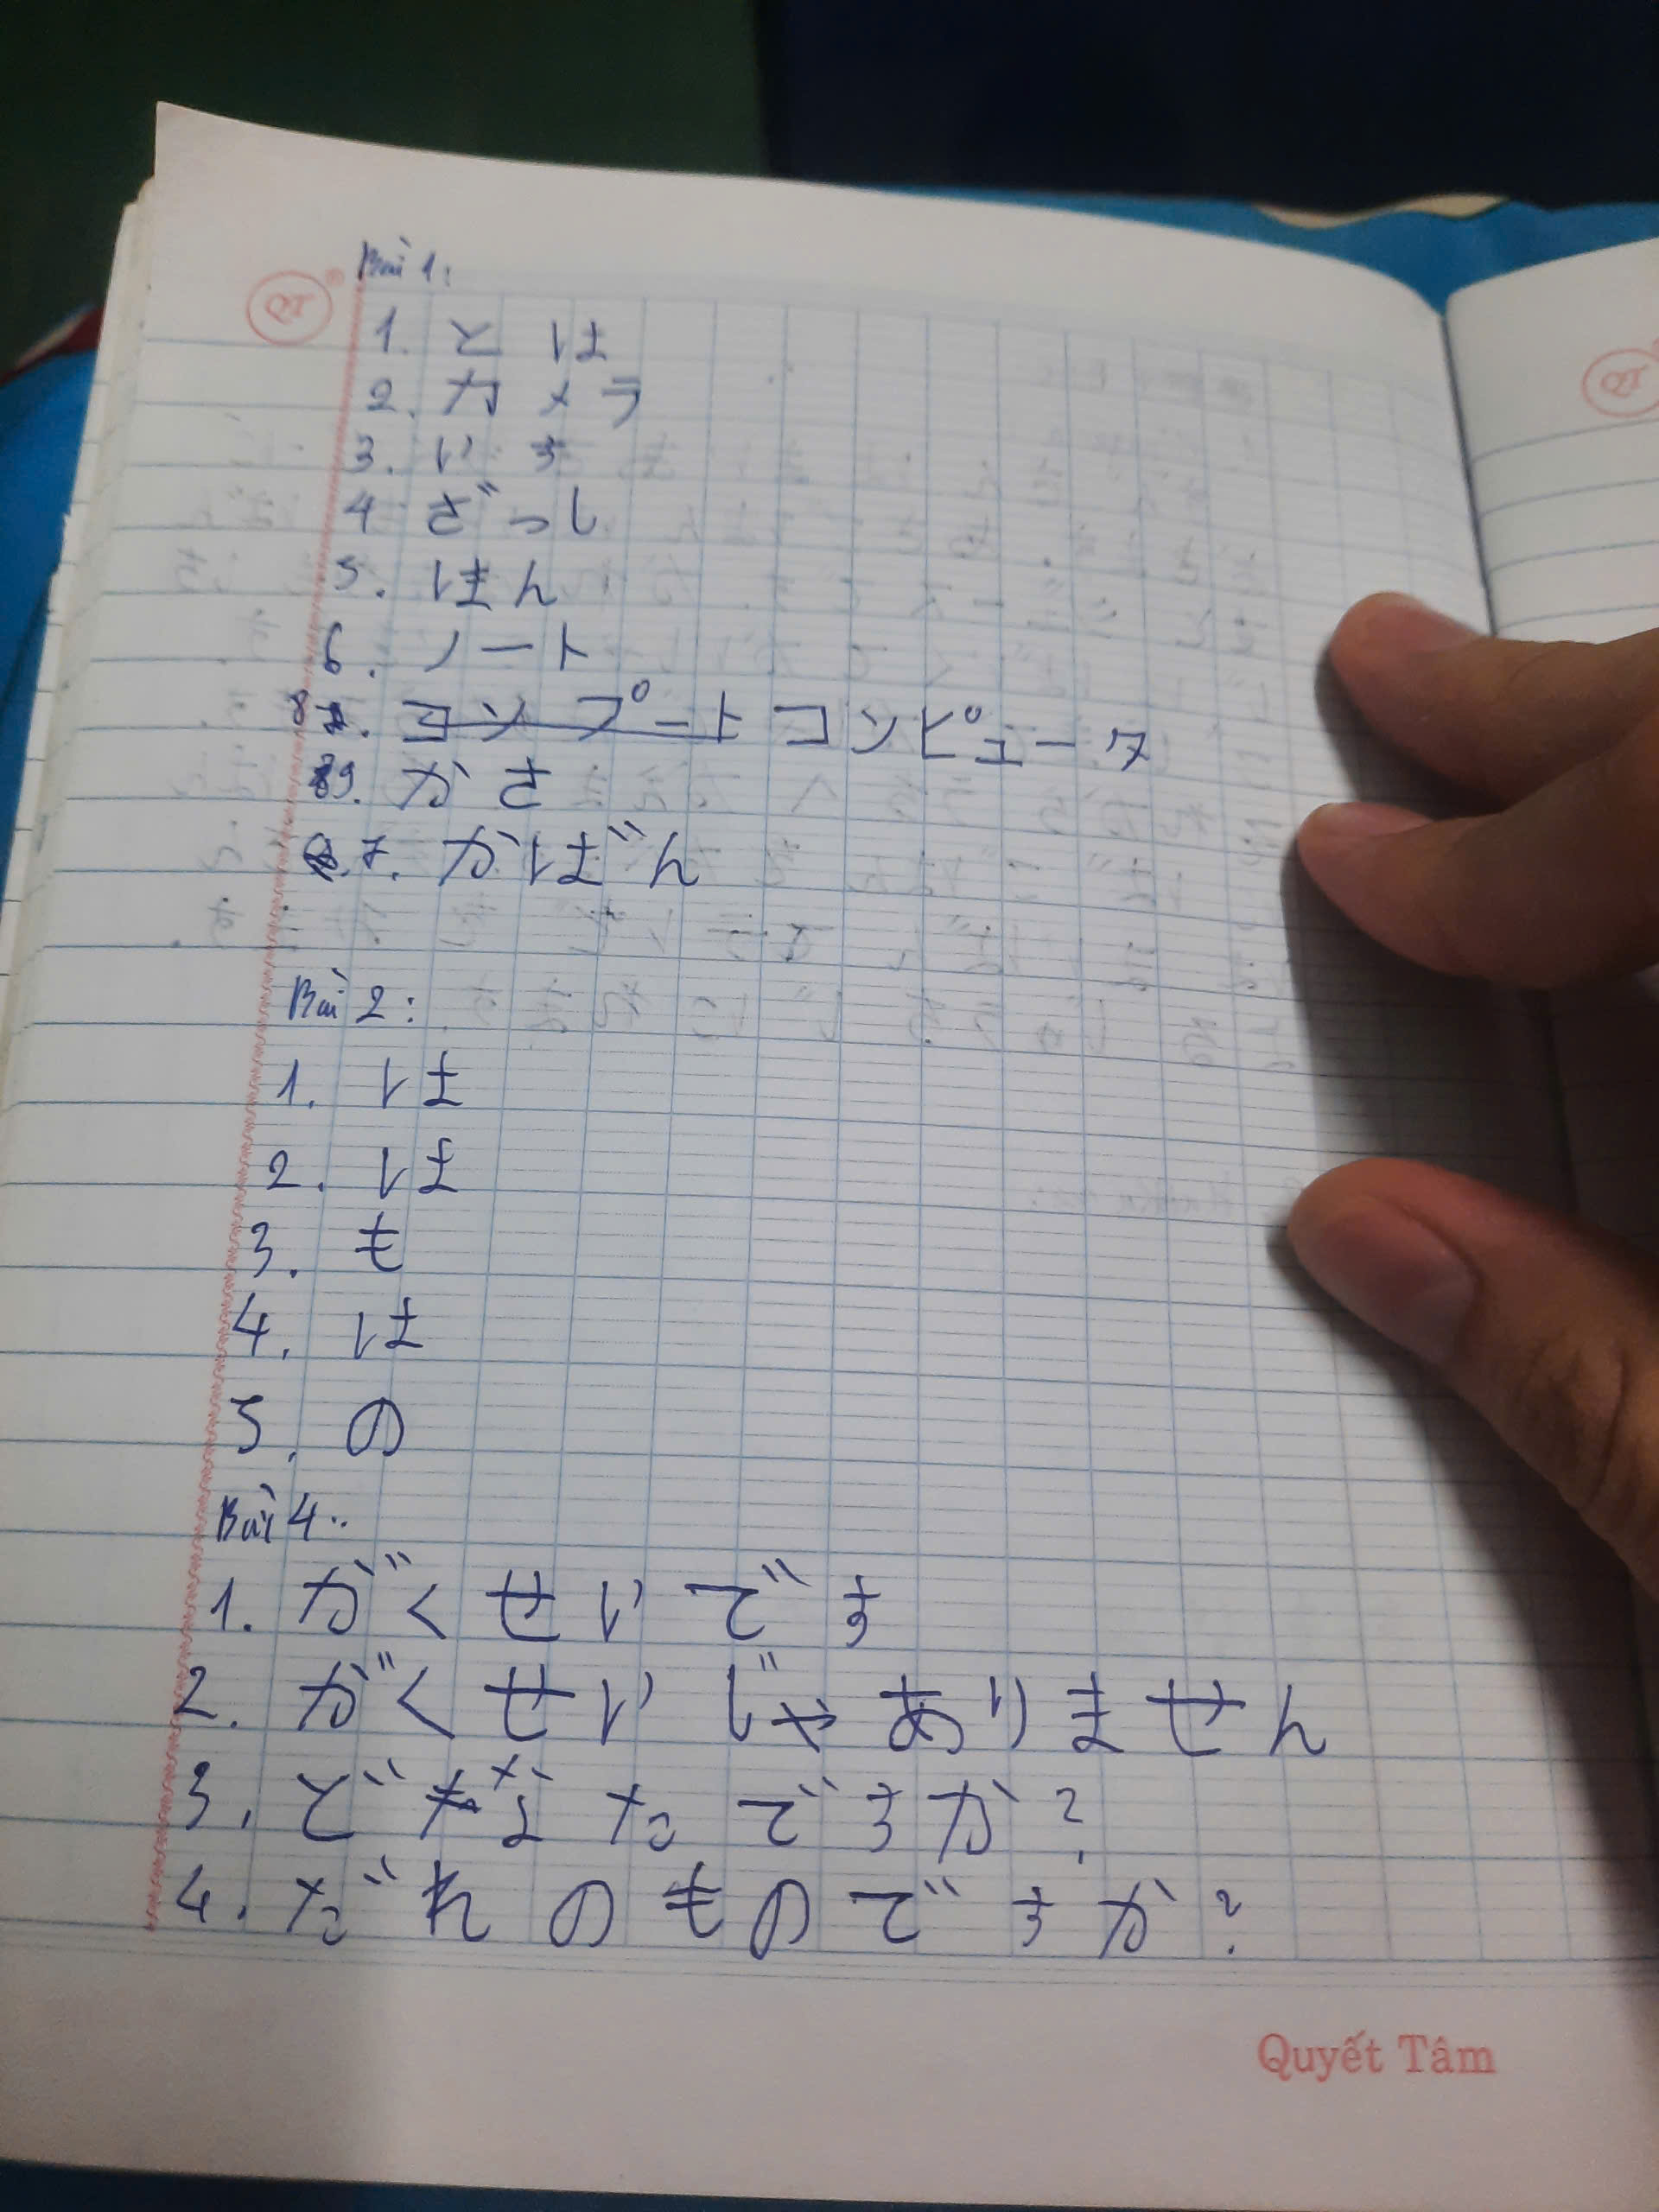 Bài 1:
1. とけ
2. カメラ
3. いす
4 ざっし
5. ほん
6. ノート
8. コンプート コンピュータ
9. かさ
7. かばん
Bài 2:
1. は
2. は
3. も
4. は
5. の
Bài 4:
1. がくせいです
2. がくせいじゃありません
3. どなたですか?
4. だれのものですか?
Quyết Tâm